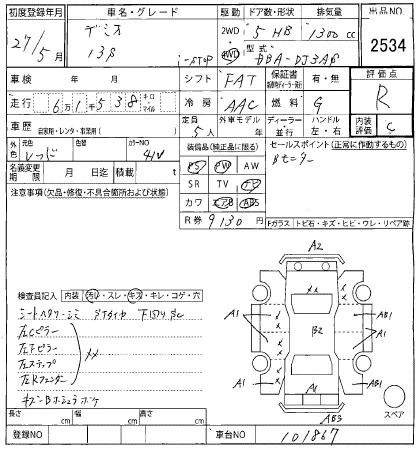 初度登録年月 車名・グレード 駆動 ドア数・形状 排気量 出品NO
27/5月 デミオ 2WD 5 HB 1300 cc 2534
13S i-stop 4WD 型式 DBA-DJ3AS
車検 年 月 シフト FAT 保証書 有・無 評価点
走行 6万1千538 キロ マイル 冷房 AAC 燃料 G R
車歴 自家用・レンタ・事業用( ) 定員 5人 外車モデル 年 ディーラー 並行 ハンドル 左・右 内装評価 C
外色 元色 色替 カラーNO 41V 装備品(純正品に限る) セールスポイント(正常に作動するもの)
名義変更期限 月 日迄 積載 t PS PW AW Bモニター
注意事項(欠品・修復・不具合箇所および状態) SR TV ナビ
カワ エアB ABS
R券 9130 円 Fガラス トビ石・キズ・ヒビ・ワレ・リペア跡
A2
検査員記入 内装 汚レ・スレ・キズ・キレ・コゲ・穴
A1 B2 AB1
左Cピラー
左Fピラー
左ステップ
左Rフェンダー
××
A1 A1
スペア
AB3
長さ cm 幅 cm 高さ cm
登録NO 車台NO 101867